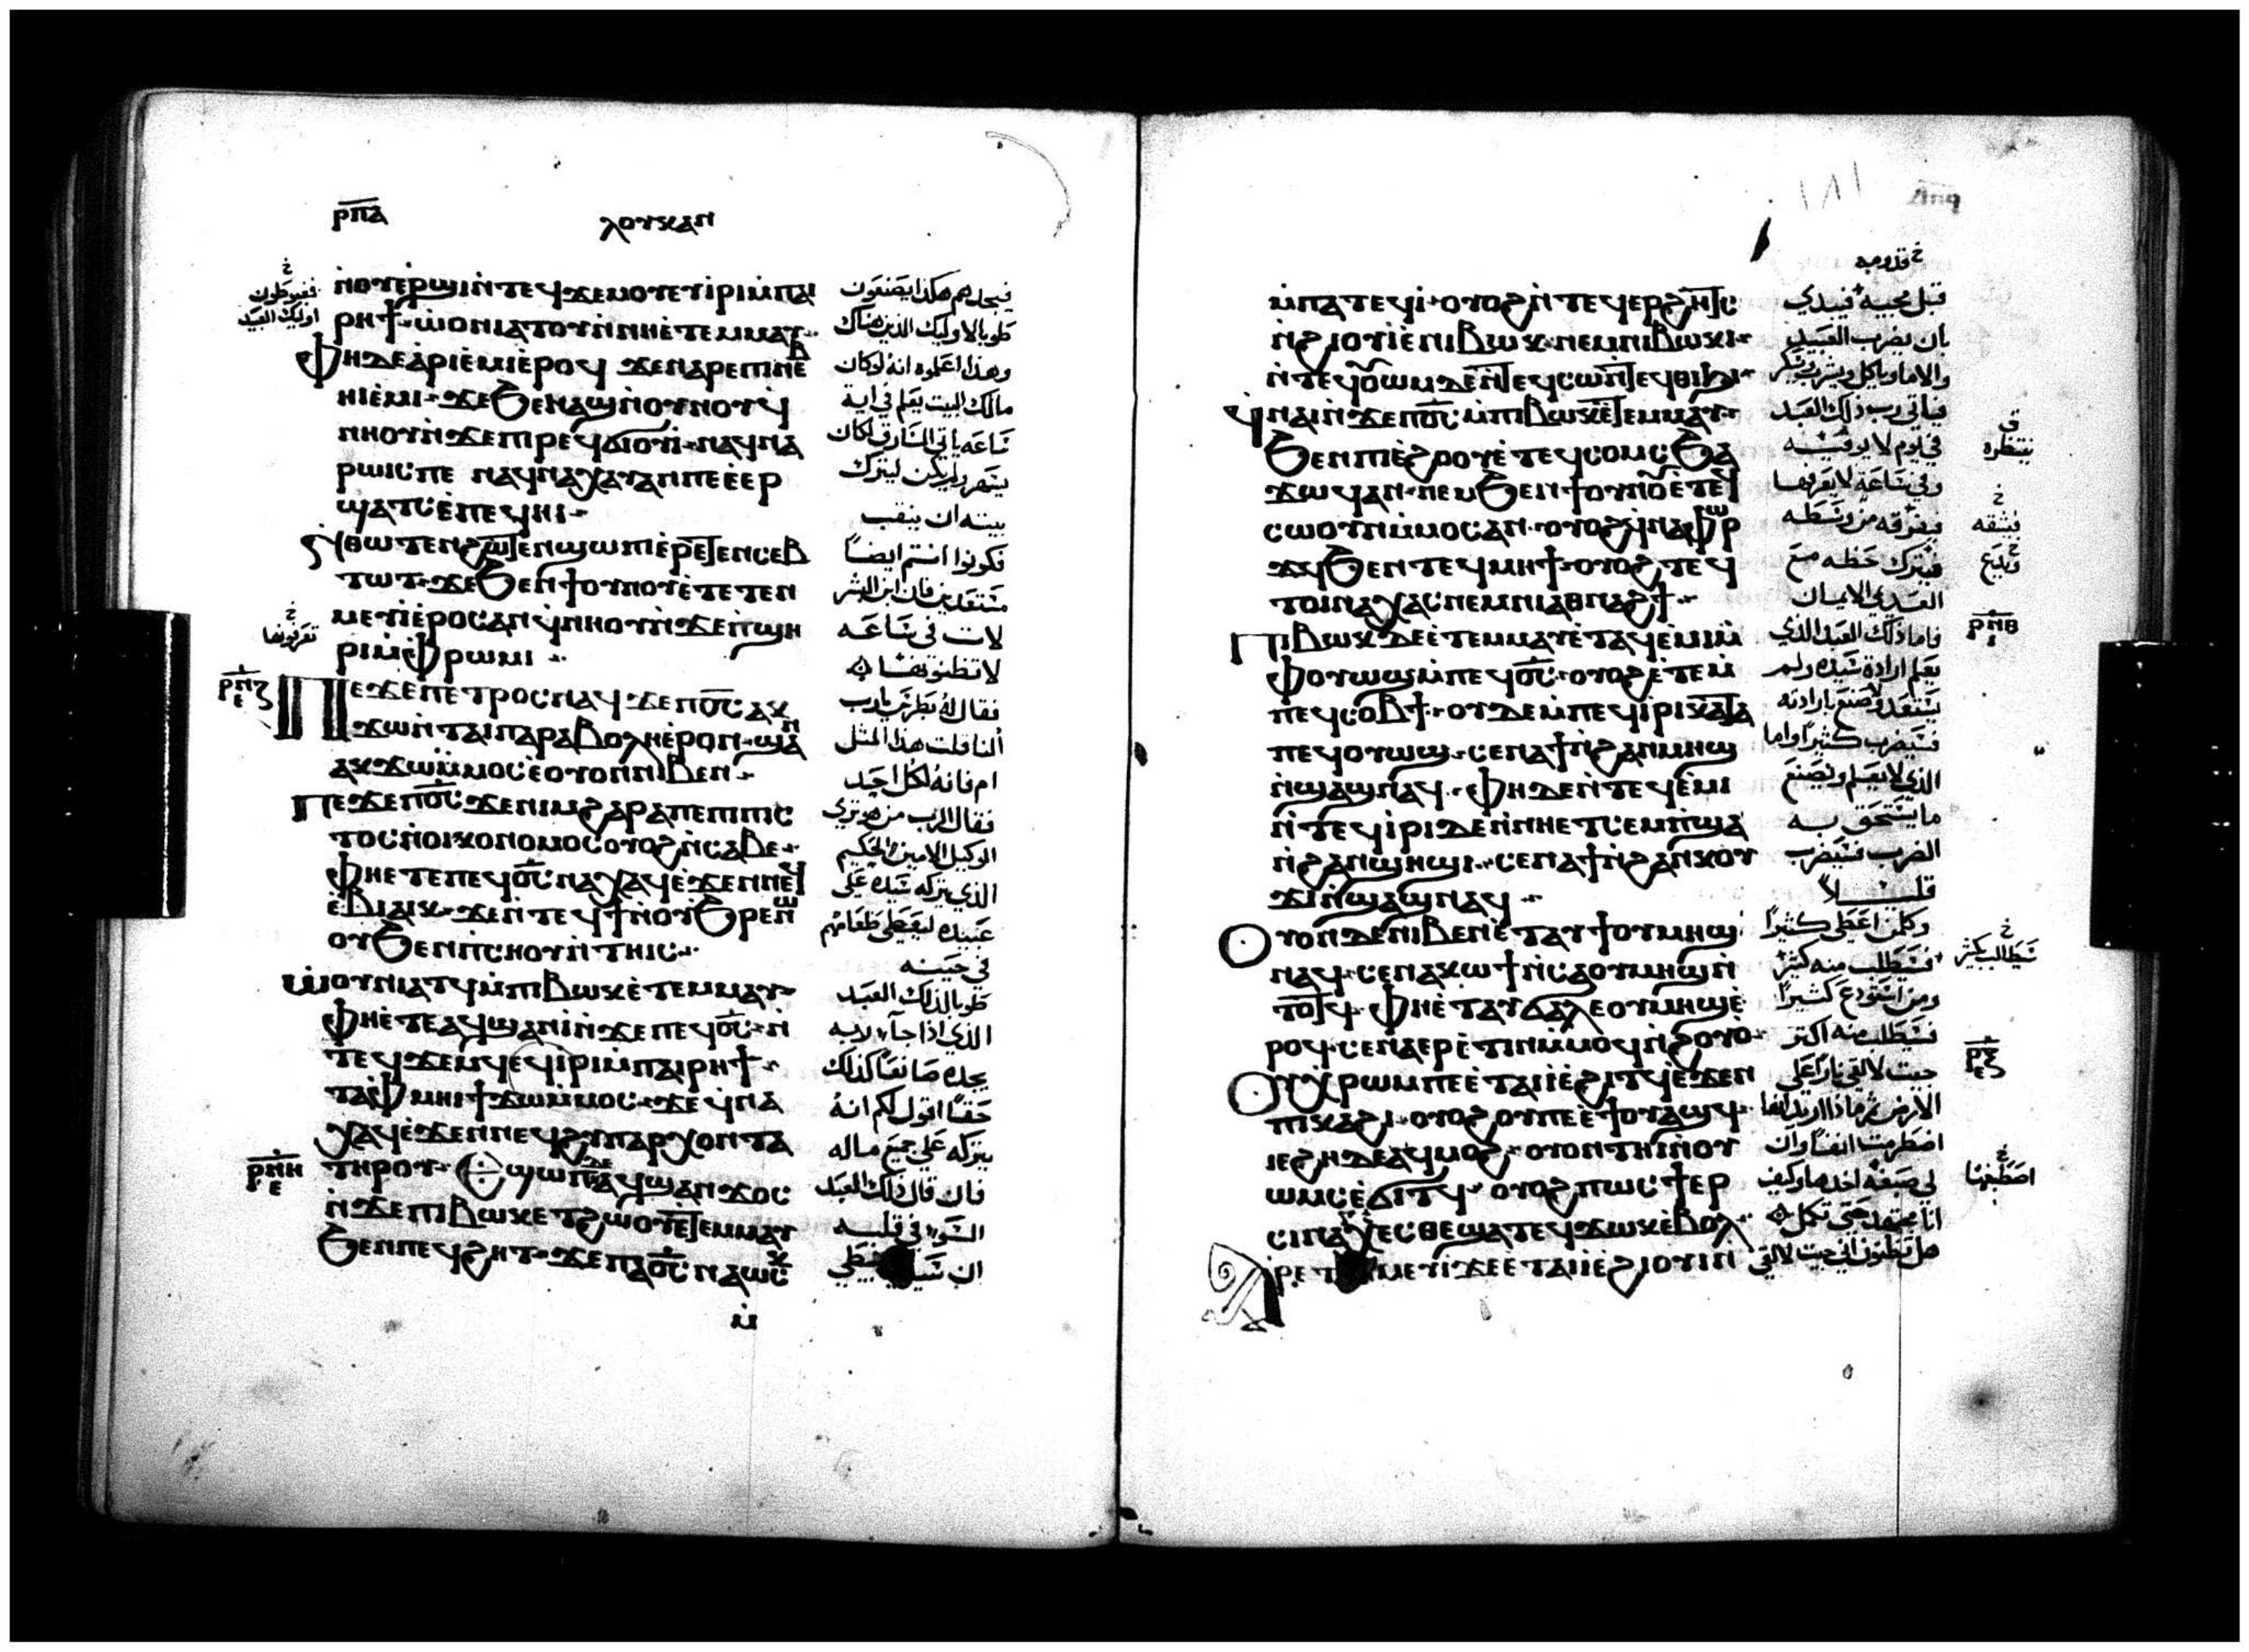 ⲣⲡⲁ
ⲗⲟⲩⲕⲁⲛ
ⲛ̀ⲟⲩⲉ̀ⲣϣⲓ ⲛ̀ⲧⲉϥϫⲉⲙⲟⲩ ⲉⲧⲓ̀ⲣⲓ ⲙ̀ⲡⲁⲓ
ⲣⲏϯ ⲱ̀ⲟⲩⲛⲓⲁⲧⲟⲩ ⲛ̀ⲛⲏⲉ̀ⲧⲉⲙⲙⲁⲩ
ⲫⲏ ⲇⲉ ⲁ̀ⲣⲓⲉ̀ⲙⲓ ⲉ̀ⲣⲟϥ ϫⲉ ⲛⲁⲣⲉ ⲡⲓⲛⲉⲃ
ⲏⲓ ⲉ̀ⲙⲓ ϫⲉ ϧⲉⲛ ⲁϣ ⲛ̀ⲟⲩⲛⲟⲩ ϥ
ⲛⲏⲟⲩ ⲛ̀ϫⲉ ⲡⲓⲣⲉϥϭⲓⲟⲩⲓ̀ ⲛⲁϥⲛⲁ
ⲣⲱⲓⲥ ⲡⲉ ⲛⲁϥⲛⲁⲭⲁⲩ ⲁⲛ ⲡⲉ ⲉ̀ⲉⲣ
ϣⲁⲧⲥ ⲉ̀ⲡⲉϥⲏⲓ
ⲛⲑⲱⲧⲉⲛ ϩⲱⲧⲉⲛ ϣⲱⲡⲓ ⲉ̀ⲣⲉⲧⲉⲛⲥⲉⲃ
ⲧⲱⲧ ϫⲉ ϧⲉⲛ ϯⲟⲩⲛⲟⲩ ⲉ̀ⲧⲉⲧⲉⲛ
ⲙⲉⲩⲓ̀ ⲉ̀ⲣⲟⲥ ⲁⲛ ϥ̀ⲛⲏⲟⲩ ⲛ̀ϫⲉ ⲡ̀ϣⲏ
ⲣⲓ ⲙ̀ⲫ̀ⲣⲱⲙⲓ
ⲡⲉϫⲉ ⲡⲉⲧⲣⲟⲥ ⲛⲁϥ ϫⲉ ⲡⲟ̅ⲥ̅ ⲁⲕ
ϫⲱ ⲛ̀ⲧⲁⲓⲡⲁⲣⲁⲃⲟⲗⲏ ⲉ̀ⲣⲟⲛ ϣⲁⲛ
ⲁⲕϫⲱ ⲙ̀ⲙⲟⲥ ⲉ̀ⲟⲩⲟⲛ ⲛⲓⲃⲉⲛ
ⲡⲉϫⲉ ⲡⲟ̅ⲥ̅ ϫⲉ ⲛⲓⲙ ϩⲁⲣⲁ ⲡⲉ ⲡⲓⲡⲓⲥ
ⲧⲟⲥ ⲛ̀ⲟⲓⲕⲟⲛⲟⲙⲟⲥ ⲟⲩⲟϩ ⲛ̀ⲥⲁⲃⲉ
ⲫⲏⲉⲧⲉ ⲡⲉϥⲟ̅ⲥ̅ ⲛⲁⲭⲁϥ ⲉ̀ϫⲉⲛ ⲛⲉϥ
ⲉ̀ⲃⲓⲁⲓⲕ ϫⲉ ⲛ̀ⲧⲉϥϯ ⲛ̀ⲟⲩϧⲣⲉ ⲛⲱ
ⲟⲩ ϧⲉⲛ ⲡ̀ⲥⲏⲟⲩ ⲛ̀ⲧⲏⲓⲥ
ⲱ̀ⲟⲩⲛⲓⲁⲧϥ ⲙ̀ⲡⲓⲃⲱⲕ ⲉ̀ⲧⲉⲙⲙⲁⲩ
ⲫⲏⲉ̀ⲧⲉ ⲁϥϣⲁⲛⲓ̀ ⲛ̀ϫⲉ ⲡⲉϥⲟ̅ⲥ̅ ⲛ̀
ⲧⲉϥϫⲉⲙϥ ⲉϥⲓ̀ⲣⲓ ⲙ̀ⲡⲁⲓⲣⲏϯ
ⲧⲁⲫ̀ⲙⲏⲓ ϯϫⲱ ⲙ̀ⲙⲟⲥ ϫⲉ ϥ̀ⲛⲁ
ⲭⲁϥ ⲉ̀ϫⲉⲛ ⲛⲉϥϩⲩⲡⲁⲣⲭⲟⲛⲧⲁ
ⲧⲏⲣⲟⲩ ⲉϣⲱⲡ ⲇⲉ ⲁϥϣⲁⲛϫⲟⲥ
ⲛ̀ϫⲉ ⲡⲓⲃⲱⲕ ⲉⲧϩⲱⲟⲩ ⲉⲧⲉⲙⲙⲁⲩ
ϧⲉⲛ ⲡⲉϥϩⲏⲧ ϫⲉ ⲡⲁⲟ̅ⲥ̅ ⲛⲁⲱⲥⲕ
ⲙ̀
فيجدهم هكذا يصنعون
طوبا لاوليك الذين هناك
وهذا اعلموه انه لو كان
مالك البيت يعلم في اية
ساعه ياتي السارق لكان
يسهر ولم يكن ليترك
بيته ان ينقب
فكونوا انتم ايضاً
مستعدين فان ابن البشر
لات في ساعه
لا تظنونها
فقال له بطرس يا رب
ألنا قلت هذا المثل
ام فانه لكل احد
فقال الرب من هو ترى
الوكيل الامين الحكيم
الذي يتركه سيده على
عبيده ليعطى طعامهم
في حينه
طوبا لذلك العبد
الذي اذا جاء ربه
يجده صانعاً كذلك
حقاً اقول لكم انه
يتركه على جميع ماله
فان قال ذلك العبد
السوء في قلبه
ان سيدي يبطي
فغبوطون
اوليك العبيد
تعرفونها
ⲣⲛⲍ
ⲉ
ⲣⲛⲏ
ⲉ
ⲙ̀ⲡⲁⲧⲉϥⲓ̀ ⲟⲩⲟϩ ⲛ̀ⲧⲉϥⲉⲣϩⲏⲧⲥ
ⲛ̀ϩⲓⲟⲩⲓ̀ ⲉ̀ⲛⲓⲃⲱⲕ ⲛⲉⲙ ⲛⲓⲃⲱⲕⲓ
ⲛ̀ⲧⲉϥⲟⲩⲱⲙ ⲇⲉ ⲛ̀ⲧⲉϥⲥⲱ ⲛ̀ⲧⲉϥⲑⲓϧⲓ
ϥ̀ⲛⲁⲓ̀ ⲛ̀ϫⲉ ⲡⲟ̅ⲥ̅ ⲙ̀ⲡⲓⲃⲱⲕ ⲉ̀ⲧⲉⲙⲙⲁⲩ
ϧⲉⲛ ⲡⲓⲉ̀ϩⲟⲟⲩ ⲉ̀ⲧⲉϥⲥⲟⲙⲥ ϧⲁ
ϫⲱϥ ⲁⲛ ⲛⲉⲙ ϧⲉⲛ ϯⲟⲩⲛⲟⲩ ⲉ̀ⲧⲉϥ
ⲥⲱⲟⲩⲛ ⲙ̀ⲙⲟⲥ ⲁⲛ ⲟⲩⲟϩ ϥ̀ⲛⲁⲫⲱⲣ
ϫϥ ϧⲉⲛ ⲧⲉϥⲙⲏϯ ⲟⲩⲟϩ ⲧⲉϥ
ⲧⲟⲓ ⲛⲁⲭⲁⲥ ⲛⲉⲙ ⲛⲓⲁⲑⲛⲁϩϯ
ⲡⲓⲃⲱⲕ ⲇⲉ ⲉ̀ⲧⲉⲙⲙⲁⲩ ⲉ̀ⲧⲁϥⲉ̀ⲙⲓ ⲙ̀
ⲫⲟⲩⲱϣ ⲙ̀ⲡⲉϥⲟ̅ⲥ̅ ⲟⲩⲟϩ ⲉ̀ⲧⲉⲙ̀
ⲡⲉϥⲥⲟⲃϯ ⲟⲩⲇⲉ ⲙ̀ⲡⲉϥⲓ̀ⲣⲓ ⲕⲁⲧⲁ
ⲡⲉϥⲟⲩⲱϣ ⲥⲉⲛⲁϯ ⲛ̀ϩⲁⲛⲙⲏϣ
ⲛ̀ϣⲁϣ ⲛⲁϥ ⲫⲏ ⲇⲉ ⲛ̀ⲧⲉϥⲉ̀ⲙⲓ
ⲛ̀ⲧⲉϥⲓ̀ⲣⲓ ⲇⲉ ⲛ̀ⲛⲏⲉⲧⲥⲉⲙⲡ̀ϣⲁ
ⲛ̀ϩⲁⲛϣⲏϣⲓ ⲥⲉⲛⲁϯ ⲛ̀ϩⲁⲛⲕⲟⲩ
ϫⲓ ⲛ̀ϣⲁϣ ⲛⲁϥ
ⲟⲩⲟⲛ ⲇⲉ ⲛⲓⲃⲉⲛ ⲉ̀ⲧⲁⲩϯ ⲟⲩⲙⲏϣ
ⲛⲁϥ ⲥⲉⲛⲁⲕⲱϯ ⲛ̀ⲥⲁ ⲟⲩⲙⲏϣ ⲛ̀
ⲧⲟⲧϥ ⲫⲏⲉ̀ⲧⲁⲩϭⲁⲗⲉ ⲟⲩⲙⲏϣ ⲉ̀
ⲣⲟϥ ⲥⲉⲛⲁⲉⲣⲉ̀ⲧⲓⲛ ⲙ̀ⲙⲟϥ ⲛ̀ϩⲟⲩⲟ̀
ⲟⲩⲭ̀ⲣⲱⲙ ⲡⲉ ⲉ̀ⲧⲁⲓⲓ̀ ⲉ̀ϩⲓⲧϥ ⲉ̀ϫⲉⲛ
ⲡⲓⲕⲁϩⲓ ⲟⲩⲟϩ ⲟⲩ ⲡⲉ ⲉ̀ϯⲟⲩⲁϣϥ
ⲓⲉϩⲏⲇⲉ ⲁϥⲙⲟϩ ⲟⲩⲟⲛⲧⲏⲓ ⲛ̀ⲟⲩ
ⲱⲙⲥ ⲉ̀ϭⲓⲧϥ ⲟⲩⲟϩ ⲡⲱⲥ ϯⲉⲣ
ⲥⲓⲛⲁⲭⲉⲥⲑⲉ ϣⲁⲧⲉϥϫⲱⲕ ⲉ̀ⲃⲟⲗ
ⲁⲣⲉⲧⲉⲛⲙⲉⲩⲓ̀ ϫⲉ ⲉ̀ⲧⲁⲓⲓ̀ ⲉ̀ϩⲓⲟⲩⲓ ⲛ
قدومه
قبل مجيه فيبدي
بان يضرب العبيد
والاما وياكل ويشرب ويسكر
فياتي رب ذلك العبد
في يوم لا يرقبه
وفي ساعه لا يعرفها
ويفرقه من وسطه
فيترك حظه مع
العديمي الايمان
فاما ذلك العبد الذي
يعلم ارادة سيده ولم
يستعد ولا صنع بارادته
فسيضرب كثيراً واما
الذي لا يعلم ويصنع
ما يستحق به
الضرب فسيضرب
قليلاً
وكلمن اعطي كثيراً
فسيطلب منه كثير
ومن استودع كثيراً
فسيطلب منه اكثر
جيت لالقي ناراً على
الارض
لي صبغه اخذها وكيف
انا محتمل حتى تكمل
هل تظنون اني جيت لالقي
ينتظره
فيشقه
ويدع
ⲣⲛⲑ
ⲓ
ⲣⲝ
ⲉ
اصطبغها
١٨١